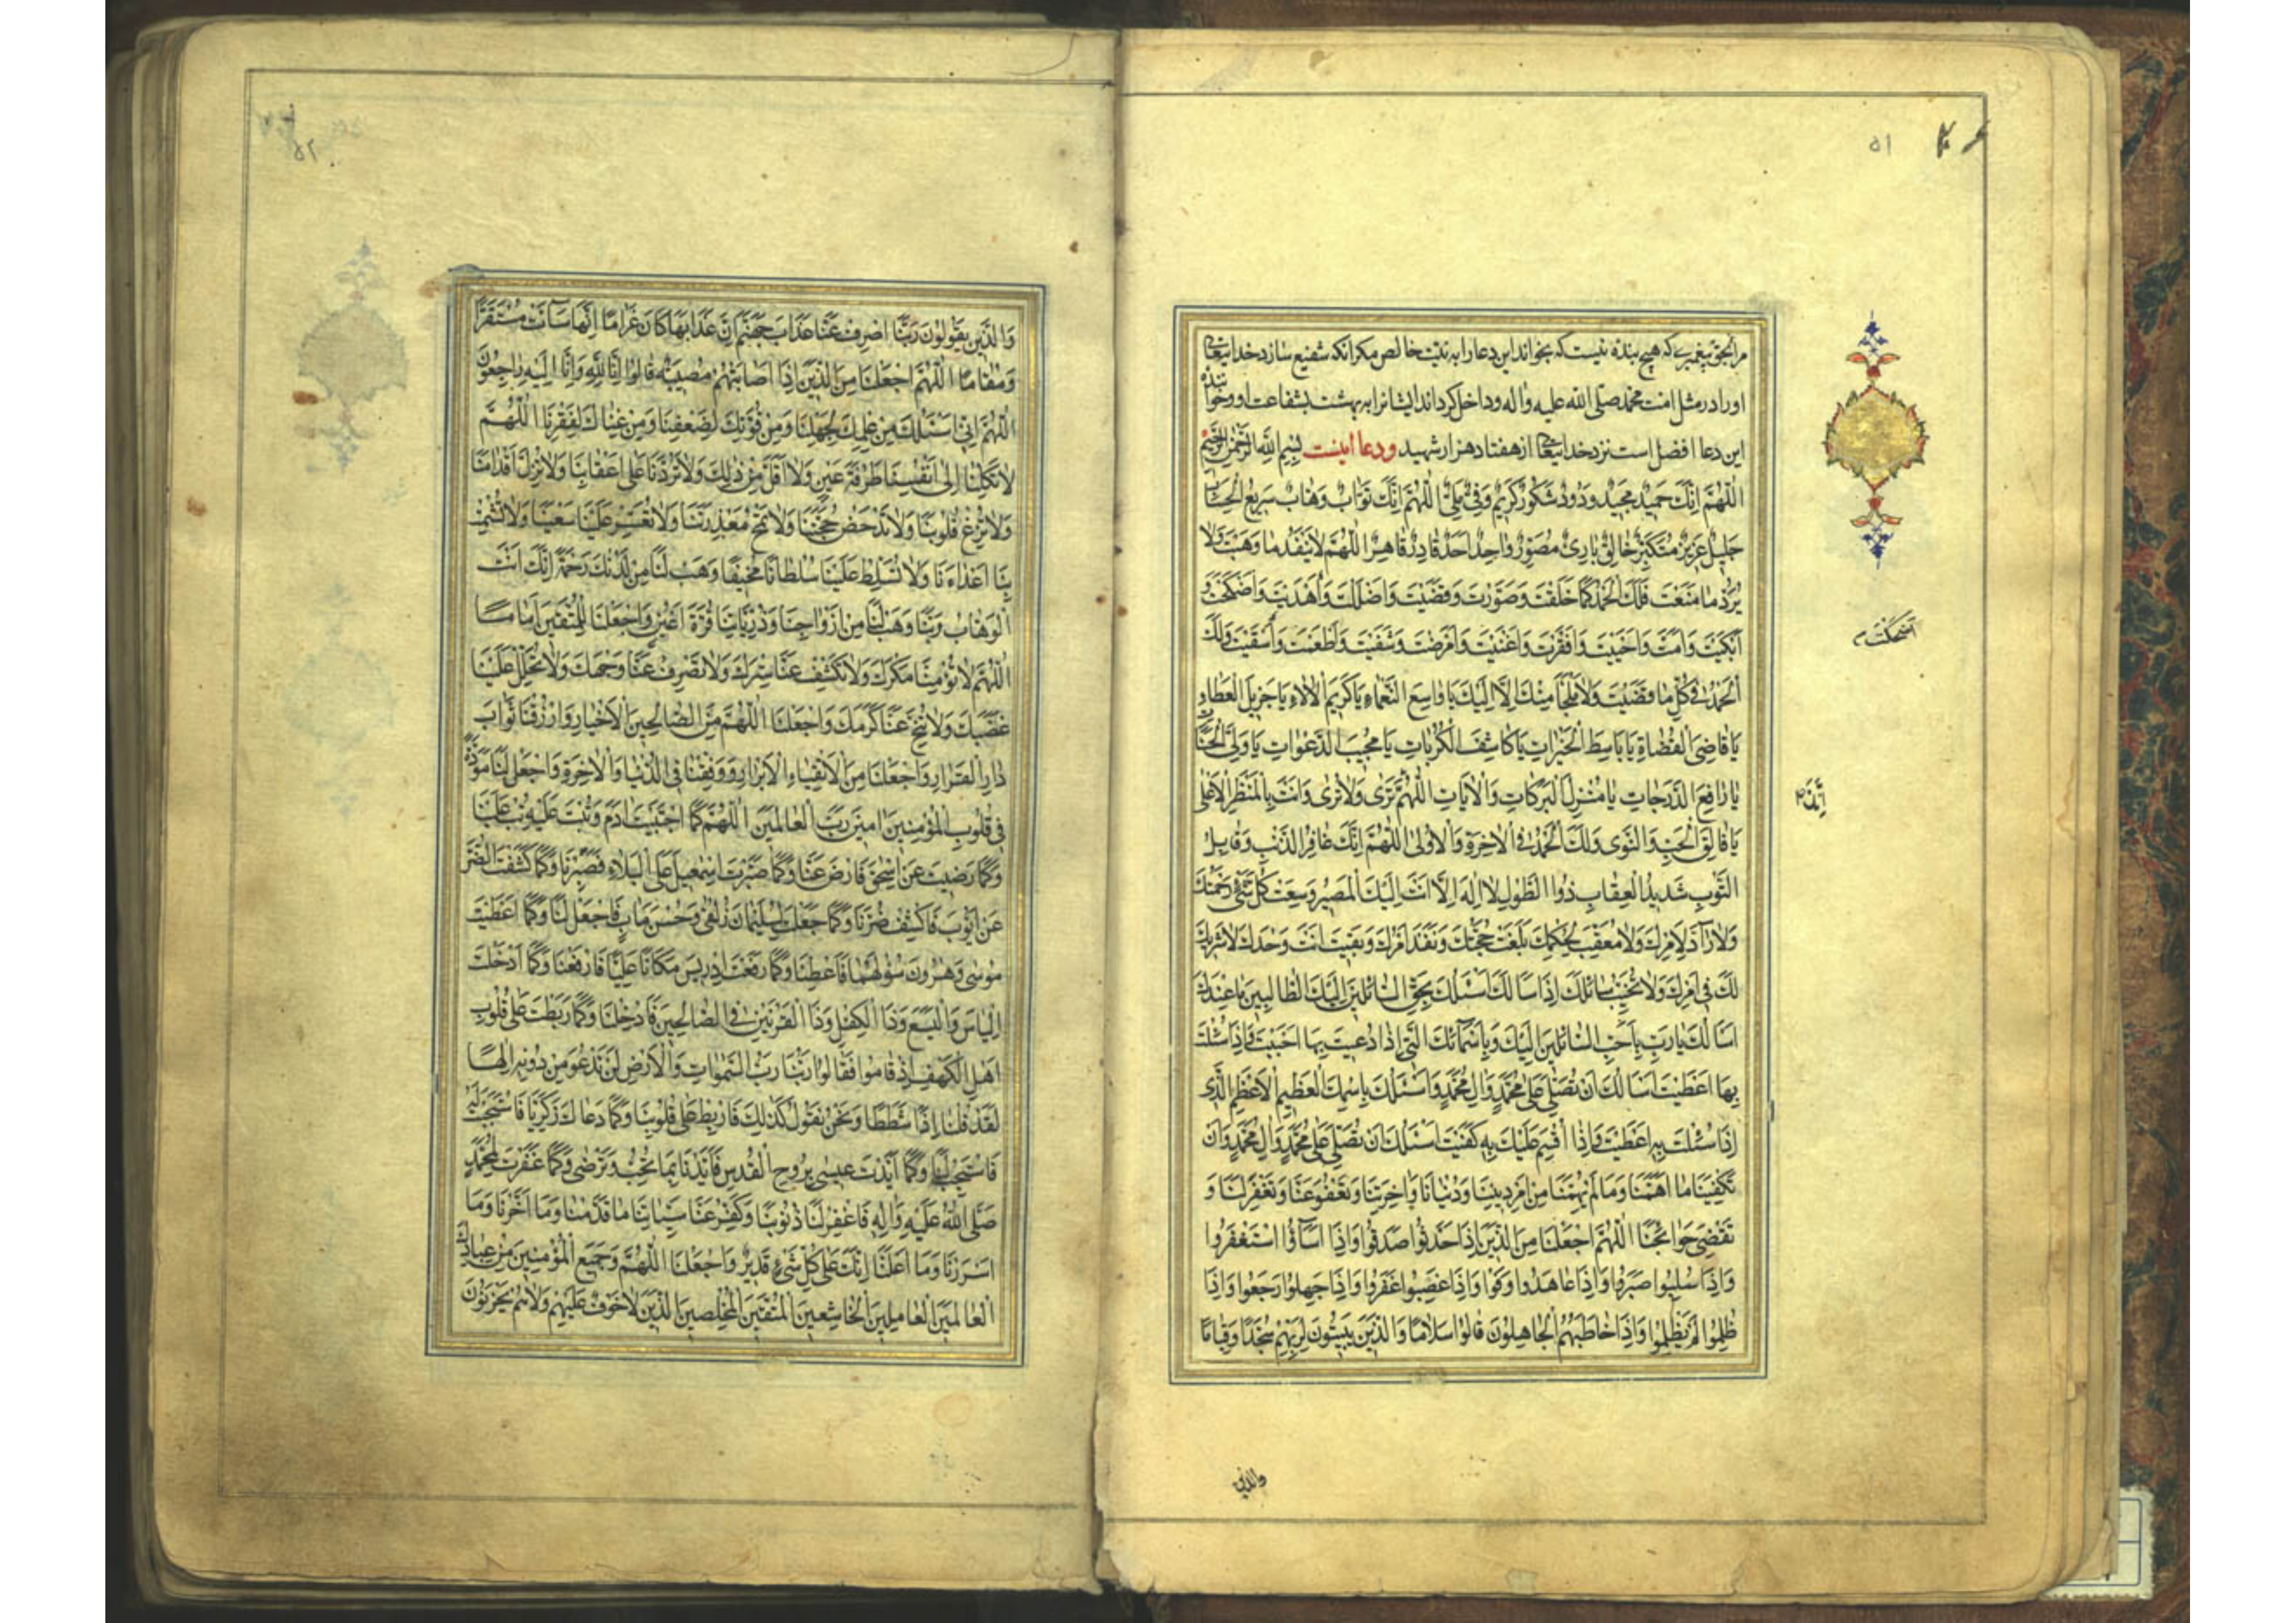 ۵۱
مرا بحق پیغمبری که هیچ بنده نیست که بخواند این دعا را به نیت خالص مکر آنکه شفیع سازد خدایتعالی
او را در مثل امت محمد صلی الله علیه واله وداخل کرداند ایشانرا به بهشت بشفاعت او وخواننده
این دعا افضل است نزد خدایتعالی از هفتاد هزار شهید ودعا اینست بسم الله الرحمن الرحیم
اَللّٰهُمَّ اِنَّكَ حَمیدٌ مَجیدٌ وَدُودٌ شَكُورٌ كَریمٌ وَفِیٌّ مَلِیٌّ اَللّٰهُمَّ اِنَّكَ تَوّٰابٌ وَهّٰابٌ سَریعُ الْحِسٰابِ
جَلیلٌ عَزیزٌ مُتَكَبِّرٌ خٰالِقٌ بٰارِئٌ مُصَوِّرٌ وٰاحِدٌ اَحَدٌ قٰادِرٌ قٰاهِرٌ اَللّٰهُمَّ لاٰ یَنْفَدُ مٰا وَهَبْتَ وَلاٰ
یُرَدُّ مٰا مَنَعْتَ فَلَكَ الْحَمْدُ كَمٰا خَلَقْتَ وَصَوَّرْتَ وَقَضَیْتَ وَاَضْلَلْتَ وَاَهْدَیْتَ وَاَضْحَكْتَ وَ
اَبْكَیْتَ وَاَمَتَّ وَاَحْیَیْتَ وَاَفْقَرْتَ وَاَغْنَیْتَ وَاَمْرَضْتَ وَشَفَیْتَ وَاَطْعَمْتَ وَاَسْقَیْتَ وَلَكَ
اَضْحَكْتَ
الْحَمْدُ فی كُلِّ مٰا قَضَیْتَ وَلاٰ مَلْجَأَ مِنْكَ اِلاّٰ اِلَیْكَ یٰا وٰاسِعَ النَّعْمٰاءِ یٰا كَریمَ الْاٰلاٰءِ یٰا جَزیلَ الْعَطٰاءِ
یٰا قٰاضِیَ الْقُضٰاةِ یٰا بٰاسِطَ الْخَیْرٰاتِ یٰا كٰاشِفَ الْكُرُبٰاتِ یٰا مُجیبَ الدَّعَوٰاتِ یٰا وَلِیَّ الْحَسَنٰاتِ
یٰا رٰافِعَ الدَّرَجٰاتِ یٰا مُنْزِلَ الْبَرَكٰاتِ وَالْاٰیٰاتِ اَللّٰهُمَّ تَرٰی وَلاٰ تُرٰی وَاَنْتَ بِالْمَنْظَرِ الْاَعْلٰی
یٰا فٰالِقَ الْحَبِّ وَالنَّوٰی وَلَكَ الْحَمْدُ فِی الْاٰخِرَةِ وَالْاُولٰی اَللّٰهُمَّ اِنَّكَ غٰافِرُ الذَّنْبِ وَقٰابِلُ
التَّوْبِ شَدیدُ الْعِقٰابِ ذُو الطَّوْلِ لاٰ اِلٰهَ اِلاّٰ اَنْتَ اِلَیْكَ الْمَصیرُ وَسِعَتْ كُلَّ شَیْءٍ رَحْمَتُكَ
وَلاٰ رٰادَّ لِاَمْرِكَ وَلاٰ مُعَقِّبَ لِحُكْمِكَ بَلَغَتْ حُجَّتُكَ وَنَفَذَ اَمْرُكَ وَبَقیتَ اَنْتَ وَحْدَكَ لاٰ شَریكَ
لَكَ فی اَمْرِكَ وَلاٰ تُخَیِّبُ سٰائِلَكَ اِذٰا سَأَلَكَ اَسْئَلُكَ بِحَقِّ السّٰائِلینَ اِلَیْكَ الطّٰالِبینَ مٰا عِنْدَكَ
اَسْأَلُكَ یٰا رَبِّ بِاَحَبِّ السّٰائِلینَ اِلَیْكَ وَبِاَسْمٰائِكَ الَّتی اِذٰا دُعیتَ بِهٰا اَجَبْتَ فَاِذٰا سُئِلْتَ
بِهٰا اَعْطَیْتَ اَسْأَلُكَ اَنْ تُصَلِّیَ عَلٰی مُحَمَّدٍ وَاٰلِ مُحَمَّدٍ وَاَسْئَلُكَ بِاسْمِكَ الْعَظیمِ الْاَعْظَمِ الَّذی
اِذٰا سُئِلْتَ بِهِ اَعْطَیْتَ وَاِذٰا اُقْسِمَ عَلَیْكَ بِهِ كَفَیْتَ اَسْئَلُكَ اَنْ تُصَلِّیَ عَلٰی مُحَمَّدٍ وَاٰلِ مُحَمَّدٍ وَاَنْ
تَكْفِیَنٰا مٰا اَهَمَّنٰا وَمٰا لَمْ یُهِمَّنٰا مِنْ اَمْرِ دینِنٰا وَدُنْیٰانٰا وَاٰخِرَتِنٰا وَتَعْفُوَ عَنّٰا وَتَغْفِرَ لَنٰا وَ
تَقْضِیَ حَوٰائِجَنٰا اَللّٰهُمَّ اجْعَلْنٰا مِنَ الَّذینَ اِذٰا حَدَّثُوا صَدَقُوا وَاِذٰا اَسٰاؤُا اسْتَغْفَرُوا
وَاِذٰا سُلِبُوا صَبَرُوا وَاِذٰا عٰاهَدُوا وَفَوْا وَاِذٰا غَضِبُوا غَفَرُوا وَاِذٰا جَهِلُوا رَجَعُوا وَاِذٰا
ظُلِمُوا لَمْ یَظْلِمُوا وَاِذٰا خٰاطَبَهُمُ الْجٰاهِلُونَ قٰالُوا سَلاٰمًا وَالَّذینَ یَبیتُونَ لِرَبِّهِمْ سُجَّدًا وَقِیٰامًا
والذین
۵۲
وَالَّذینَ یَقُولُونَ رَبَّنَا اصْرِفْ عَنّٰا عَذٰابَ جَهَنَّمَ اِنَّ عَذٰابَهٰا كٰانَ غَرٰامًا اِنَّهٰا سٰاءَتْ مُسْتَقَرًّا
وَمُقٰامًا اَللّٰهُمَّ اجْعَلْنٰا مِنَ الَّذینَ اِذٰا اَصٰابَتْهُمْ مُصیبَةٌ قٰالُوا اِنّٰا لِلّٰهِ وَاِنّٰا اِلَیْهِ رٰاجِعُونَ
اَللّٰهُمَّ اِنّی اَسْئَلُكَ مِنْ عِلْمِكَ لِجَهْلِنٰا وَمِنْ قُوَّتِكَ لِضَعْفِنٰا وَمِنْ غِنٰاكَ لِفَقْرِنٰا اَللّٰهُمَّ
لاٰ تَكِلْنٰا اِلٰی اَنْفُسِنٰا طَرْفَةَ عَیْنٍ وَلاٰ اَقَلَّ مِنْ ذٰلِكَ وَلاٰ تَرُدَّنٰا عَلٰی اَعْقٰابِنٰا وَلاٰ تُزِلَّ اَقْدٰامَنٰا
وَلاٰ تُزِغْ قُلُوبَنٰا وَلاٰ تُدْحِضْ حُجَّتَنٰا وَلاٰ تَمْحُ مَعْذِرَتَنٰا وَلاٰ تُعَسِّرْ عَلَیْنٰا سَعْیَنٰا وَلاٰ تُشْمِتْ
بِنٰا اَعْدٰاءَنٰا وَلاٰ تُسَلِّطْ عَلَیْنٰا سُلْطٰانًا مُخیفًا وَهَبْ لَنٰا مِنْ لَدُنْكَ رَحْمَةً اِنَّكَ اَنْتَ
الْوَهّٰابُ رَبَّنٰا وَهَبْ لَنٰا مِنْ اَزْوٰاجِنٰا وَذُرِّیّٰاتِنٰا قُرَّةَ اَعْیُنٍ وَاجْعَلْنٰا لِلْمُتَّقینَ اِمٰامًا
اَللّٰهُمَّ لاٰ تُؤْمِنّٰا مَكْرَكَ وَلاٰ تَكْشِفْ عَنّٰا سِتْرَكَ وَلاٰ تَصْرِفْ عَنّٰا وَجْهَكَ وَلاٰ تُحْلِلْ عَلَیْنٰا
غَضَبَكَ وَلاٰ تُنَحِّ عَنّٰا كَرَمَكَ وَاجْعَلْنَا اللّٰهُمَّ مِنَ الصّٰالِحینَ الْاَخْیٰارِ وَارْزُقْنٰا ثَوٰابَ
دٰارِ الْقَرٰارِ وَاجْعَلْنٰا مِنَ الْاَتْقِیٰاءِ الْاَبْرٰارِ وَوَفِّقْنٰا فِی الدُّنْیٰا وَالْاٰخِرَةِ وَاجْعَلْ لَنٰا مَوَدَّةً
فی قُلُوبِ الْمُؤْمِنینَ اٰمینَ رَبَّ الْعٰالَمینَ اَللّٰهُمَّ كَمَا اجْتَبَیْتَ اٰدَمَ وَتُبْتَ عَلَیْهِ تُبْ عَلَیْنٰا
وَكَمٰا رَضیتَ عَنْ اِسْحٰقَ فَارْضَ عَنّٰا وَكَمٰا صَبَّرْتَ اِسْمٰعیلَ عَلَی الْبَلاٰءِ فَصَبِّرْنٰا وَكَمٰا كَشَفْتَ الضُّرَّ
عَنْ اَیُّوبَ فَاكْشِفْ ضُرَّنٰا وَكَمٰا جَعَلْتَ لِسُلَیْمٰانَ زُلْفٰی وَحُسْنَ مَاٰبٍ فَاجْعَلْ لَنٰا وَكَمٰا اَعْطَیْتَ
مُوسٰی وَهٰرُونَ سُؤْلَهُمٰا فَاَعْطِنٰا وَكَمٰا رَفَعْتَ اِدْریسَ مَكٰانًا عَلِیًّا فَارْفَعْنٰا وَكَمٰا اَدْخَلْتَ
اِلْیٰاسَ وَالْیَسَعَ وَذَا الْكِفْلِ وَذَا الْقَرْنَیْنِ فِی الصّٰالِحینَ فَاَدْخِلْنٰا وَكَمٰا رَبَطْتَ عَلٰی قُلُوبِ
اَهْلِ الْكَهْفِ اِذْ قٰامُوا فَقٰالُوا رَبُّنٰا رَبُّ السَّمٰوٰاتِ وَالْاَرْضِ لَنْ نَدْعُوَ مِنْ دُونِهِ اِلٰهًا
لَقَدْ قُلْنٰا اِذًا شَطَطًا وَنَحْنُ نَقُولُ كَذٰلِكَ فَارْبِطْ عَلٰی قُلُوبِنٰا وَكَمٰا دَعٰاكَ زَكَرِیّٰا فَاسْتَجَبْتَ لَهُ
فَاسْتَجِبْ لَنٰا وَكَمٰا اَیَّدْتَ عیسٰی بِرُوحِ الْقُدُسِ فَاَیِّدْنٰا بِمٰا تُحِبُّ وَتَرْضٰی وَكَمٰا غَفَرْتَ لِمُحَمَّدٍ
صَلَّی اللّٰهُ عَلَیْهِ وَاٰلِهِ فَاغْفِرْ لَنٰا ذُنُوبَنٰا وَكَفِّرْ عَنّٰا سَیِّئٰاتِنٰا مٰا قَدَّمْنٰا وَمٰا اَخَّرْنٰا وَمٰا
اَسْرَرْنٰا وَمٰا اَعْلَنّٰا اِنَّكَ عَلٰی كُلِّ شَیْءٍ قَدیرٌ وَاجْعَلْنَا اللّٰهُمَّ وَجَمیعَ الْمُؤْمِنینَ مِنْ عِبٰادِكَ
الْعٰالِمینَ الْعٰامِلینَ الْخٰاشِعینَ الْمُتَّقینَ الْمُخْلِصینَ الَّذینَ لاٰ خَوْفٌ عَلَیْهِمْ وَلاٰ هُمْ یَحْزَنُونَ